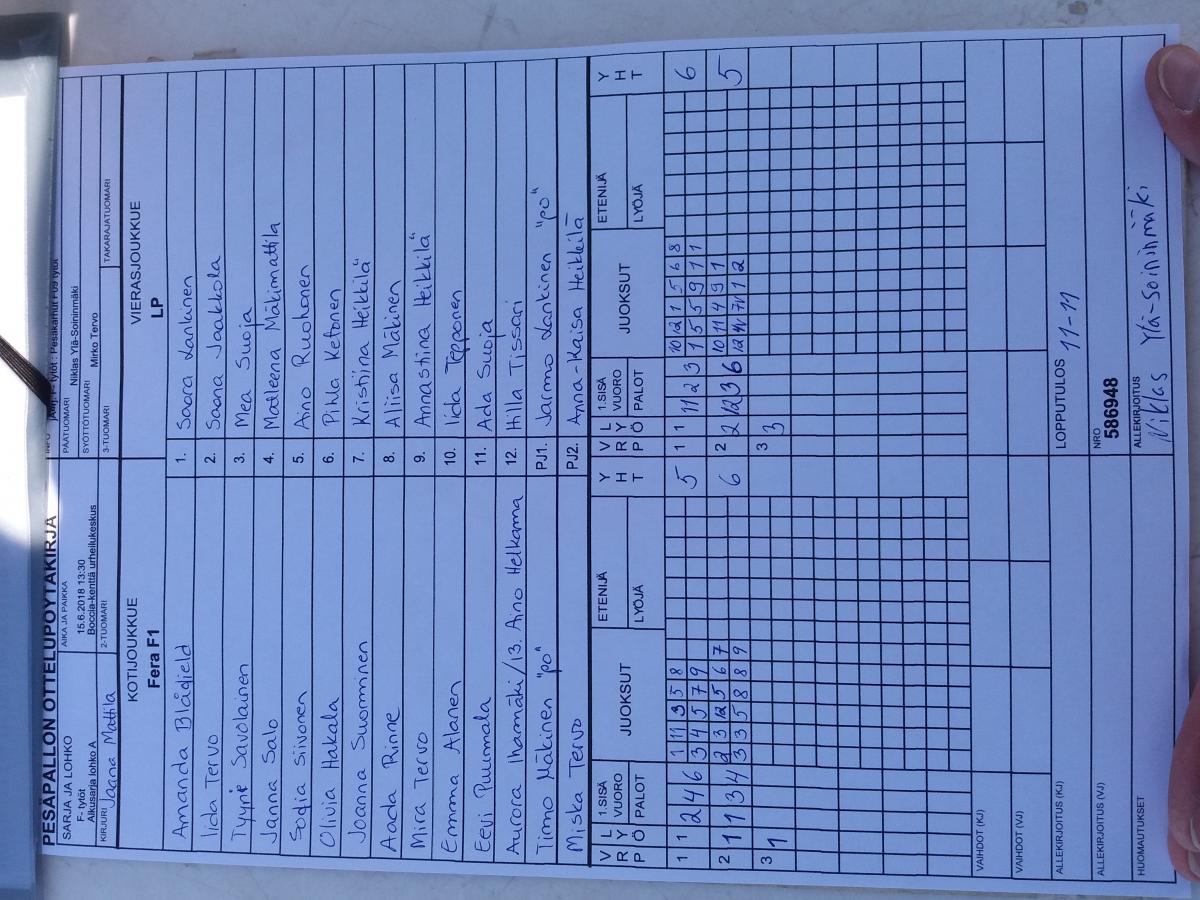 PESÄPALLON OTTELUPÖYTÄKIRJA
SARJA JA LOHKO
F- tytöt
Alkusarja lohko A
AIKA JA PAIKKA
15.6.2018 13:30
Boccia-kenttä urheilukeskus
PÄÄTUOMARI Niklas Ylä-Soininmäki
SYÖTTÖTUOMARI Mirko Tervo
KIRJURI Jaana Mattila
2-TUOMARI
3-TUOMARI
TAKARAJATUOMARI
KOTIJOUKKUE
Fera F1
VIERASJOUKKUE
LP
Amanda Blåfield 1. Saara Lankinen
Iida Tervo 2. Saana Jaakkola
Tyyne Savolainen 3. Mea Suoja
Janna Salo 4. Matleena Mäkimattila
Sofia Siivonen 5. Aino Ruohonen
Olivia Hakala 6. Pihla Ketonen
Joanna Suominen 7. Kristiina Heikkilä
Aada Rinne 8. Aliisa Mäkinen
Mira Tervo 9. Annastiina Heikkilä
Emma Alanen 10. Iida Tepponen
Eevi Puumala 11. Ada Suoja
Aurora Ihamäki/13. Aino Helkama 12. Hilla Tissari
Timo Mäkinen "po" PJ1. Jarmo Lankinen "po"
Miska Tervo PJ2. Anna-Kaisa Heikkilä
VRP LYÖ 1.SISÄ VUORO PALOT JUOKSUT ETENIJÄ LYÖJÄ YHT VRP LYÖ 1.SISÄ VUORO PALOT JUOKSUT ETENIJÄ LYÖJÄ YHT
1 1 2 4 6 1 11 3 5 8 5 1 1 11 2 3 10 12 1 5 6 8 6
3 4 5 7 9 1 5 5 9 1 1
2 1 1 3 4 2 3 12 5 6 7 6 2 2 12 3 6 10 11 4 9 1 5
3 3 5 8 8 9 1 2
3 1 3 3
VAIHDOT (KJ)
VAIHDOT (VJ)
ALLEKIRJOITUS (KJ)
LOPPUTULOS 11-11
ALLEKIRJOITUS (VJ)
NRO
586948
HUOMAUTUKSET
ALLEKIRJOITUS
Niklas Ylä-Soininmäki